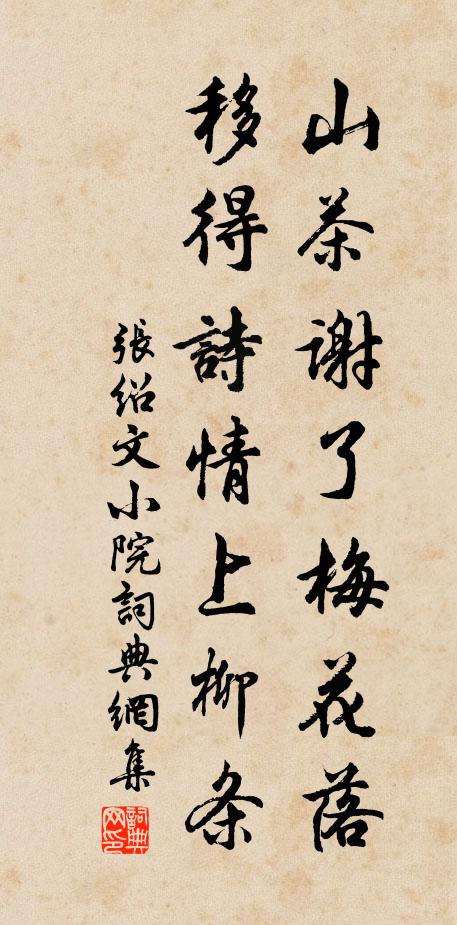 山茶谢了梅花落
移得詩情上柳条
張紹文小院詞典網集
詞典
网印